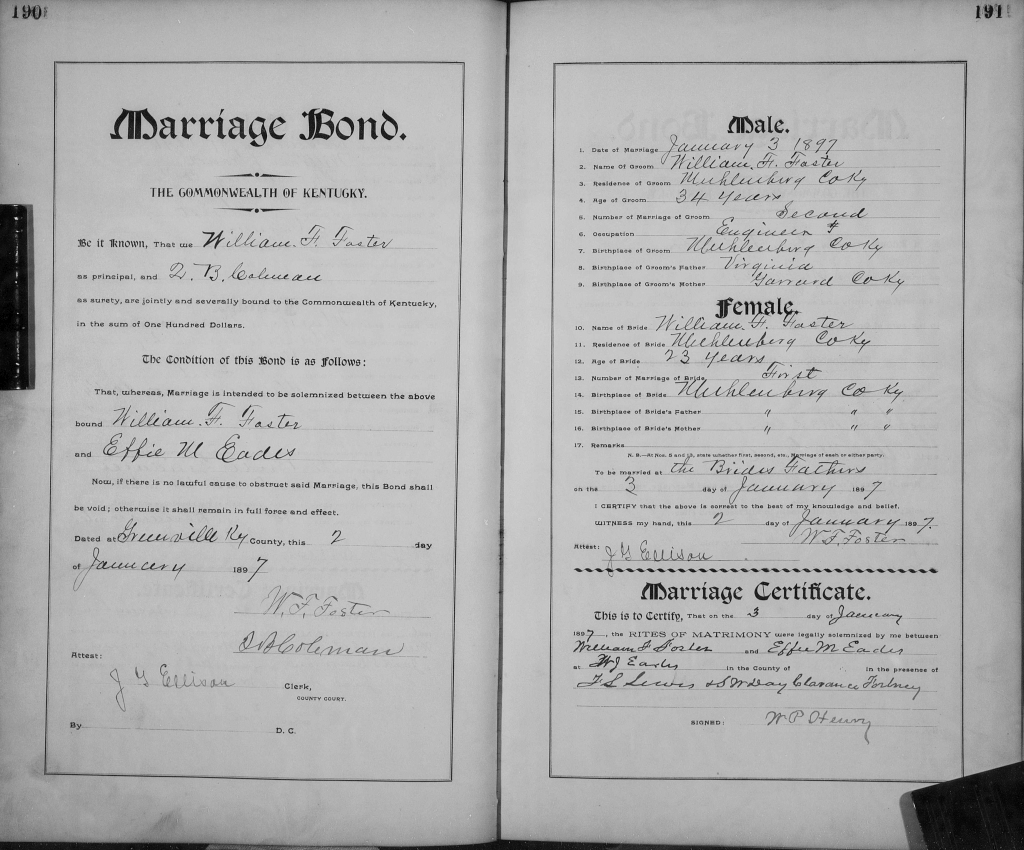 190
Marriage Bond.
THE COMMONWEALTH OF KENTUCKY.
Be it Known, That we William. F. Foster
as principal, and D. B. Coleman
as surety, are jointly and severally bound to the Commonwealth of Kentucky,
in the sum of One Hundred Dollars.
The Condition of this Bond is as Follows:
That, whereas, Marriage is intended to be solemnized between the above
bound William. F. Foster
and Effie M Eades
Now, if there is no lawful cause to obstruct said Marriage, this Bond shall
be void; otherwise it shall remain in full force and effect.
Dated at Greenville Ky County, this 2 day
of January 1897
W. F. Foster
D B Coleman
Attest:
J G Ellison Clerk,
COUNTY COURT.
By D. C.
191
Male.
1. Date of Marriage January 3 1897
2. Name Of Groom William. F. Foster
3. Residence of Groom Muhlenberg Co Ky
4. Age of Groom 34 years
5. Number of Marriage of Groom Second
6. Occupation Engineer
7. Birthplace of Groom Muhlenberg Co Ky
8. Birthplace of Groom's Father Virginia
9. Birthplace of Groom's Mother Garrard Co Ky
Female.
10. Name of Bride William. F. Foster
11. Residence of Bride Muhlenberg Co Ky
12. Age of Bride 23 years
13. Number of Marriage of Bride First
14. Birthplace of Bride Muhlenberg Co Ky
15. Birthplace of Bride's Father " " "
16. Birthplace of Bride's Mother " " "
17. Remarks
N. B.—At Nos. 5 and 13, state whether first, second, etc., Marriage of each or either party.
To be married at the Brides Fathers
on the 3 day of January 1897
I CERTIFY that the above is correct to the best of my knowledge and belief.
WITNESS my hand, this 2 day of January 1897.
W. F. Foster
Attest: J G Ellison
Marriage Certificate.
This is to Certify, That on the 3 day of January
1897, the RITES OF MATRIMONY were legally solemnized by me between
William F Foster and Effie M Eades
at W J Eades in the County of in the presence of
T S Lewis & S W Day Clarance Forbney
SIGNED: W P Henry